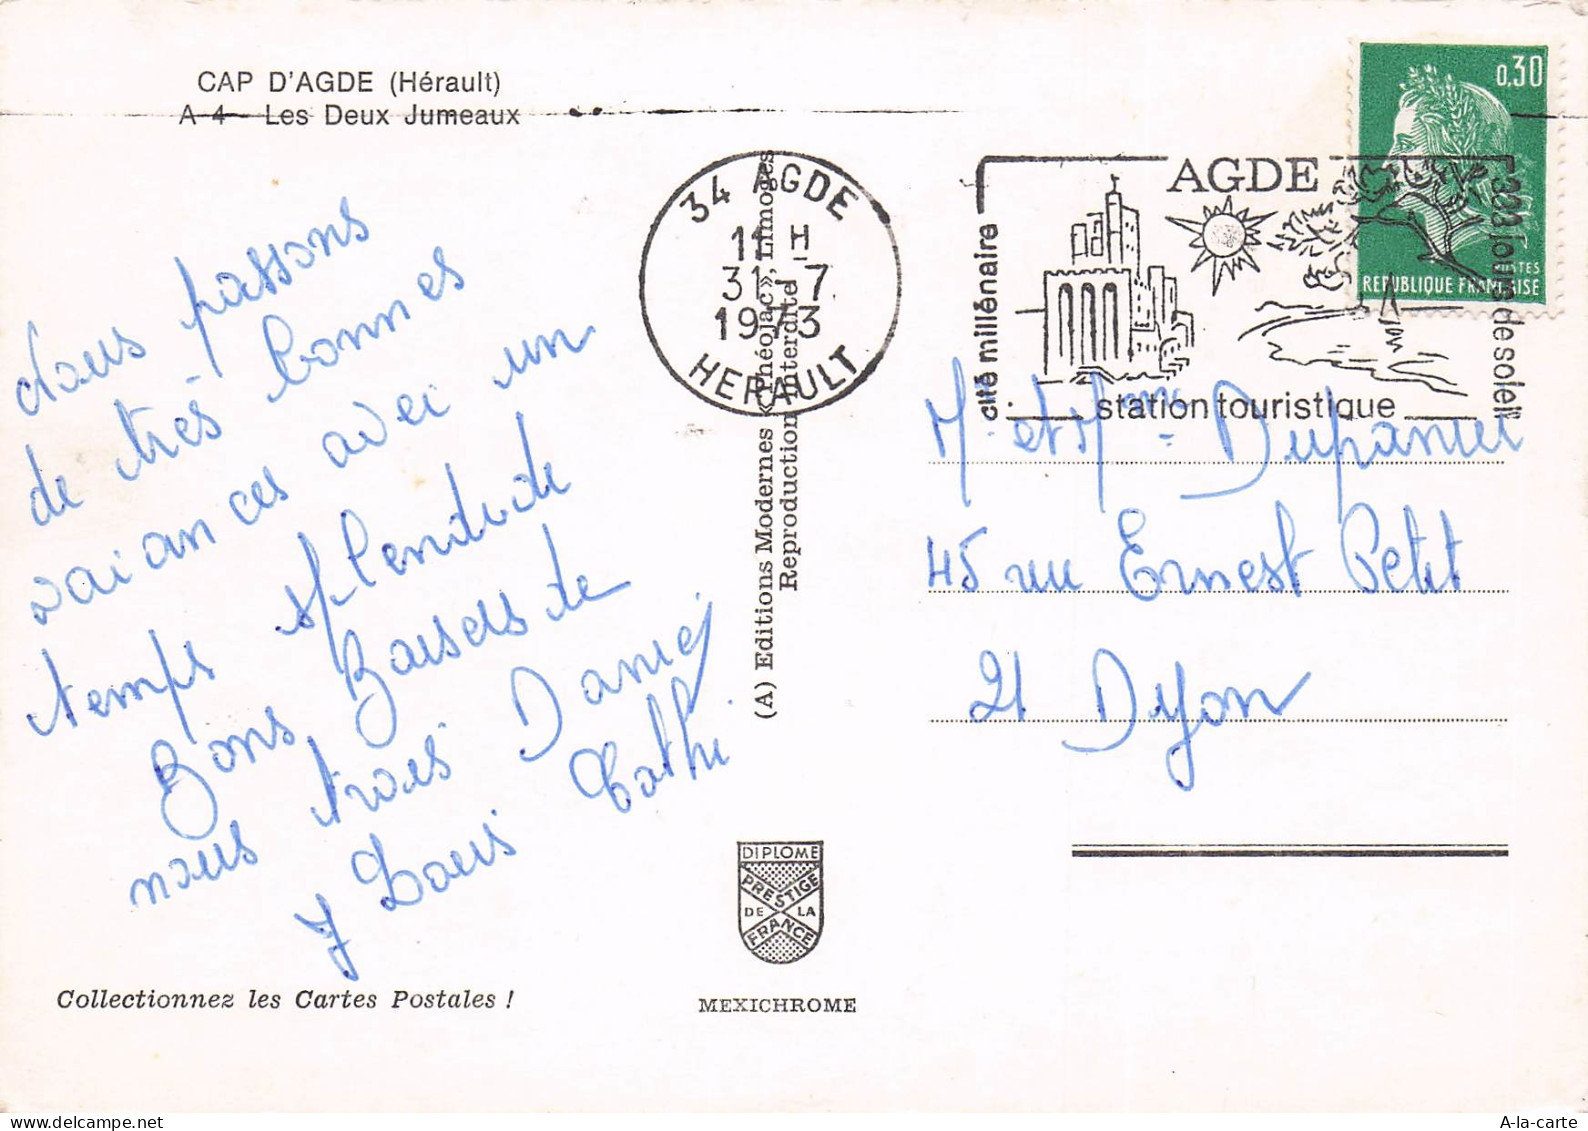 CAP D'AGDE (Hérault)
A 4 - Les Deux Jumeaux
dous passons
de très bonnes
vaiances avec un
temps splendide
Bons Baisers de
nous trois Daniel
J Louis Cathi
Collectionnez les Cartes Postales !
(A) Editions Modernes « Théojac », Limoges
Reproduction interdite
DIPLOME
PRESTIGE
DE LA
FRANCE
MEXICHROME
34 AGDE
11 H
31 - 7
1973
HERAULT
AGDE
cité millénaire
station touristique
333 jours de soleil
0,30
POSTES
REPUBLIQUE FRANÇAISE
Mr et Mme Dupanier
45 rue Ernest Petit
21 Dijon
A-la-carte